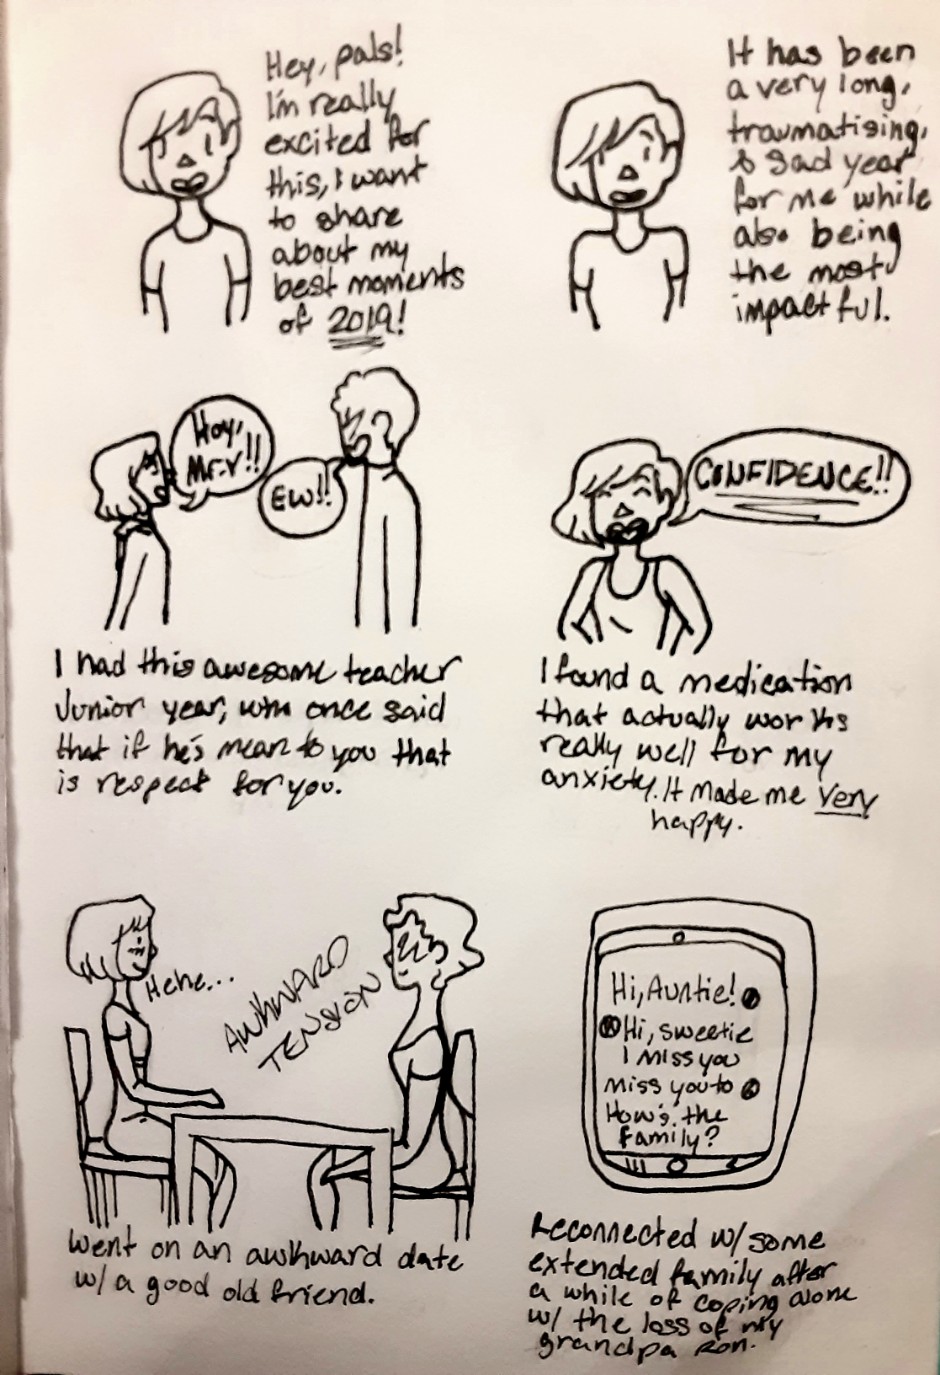 Hey, pals!
I'm really
excited for
this, I want
to share
about my
best moments
of 2019!
It has been
a very long,
traumatising,
& sad year
for me while
also being
the most
impactful.
Hoy,
Mr.V!!
EW!!
I had this awesome teacher
Junior year, who once said
that if he's mean to you that
is respect for you.
CONFIDENCE!!
I found a medication
that actually works
really well for my
anxiety. It made me very
happy.
Hehe...
AWKWARD
TENSION
Went on an awkward date
w/ a good old friend.
Hi, Auntie!
Hi, sweetie
I miss you
miss you to
How's the
family?
Reconnected w/ some
extended family after
a while of coping alone
w/ the loss of my
grandpa Ron.